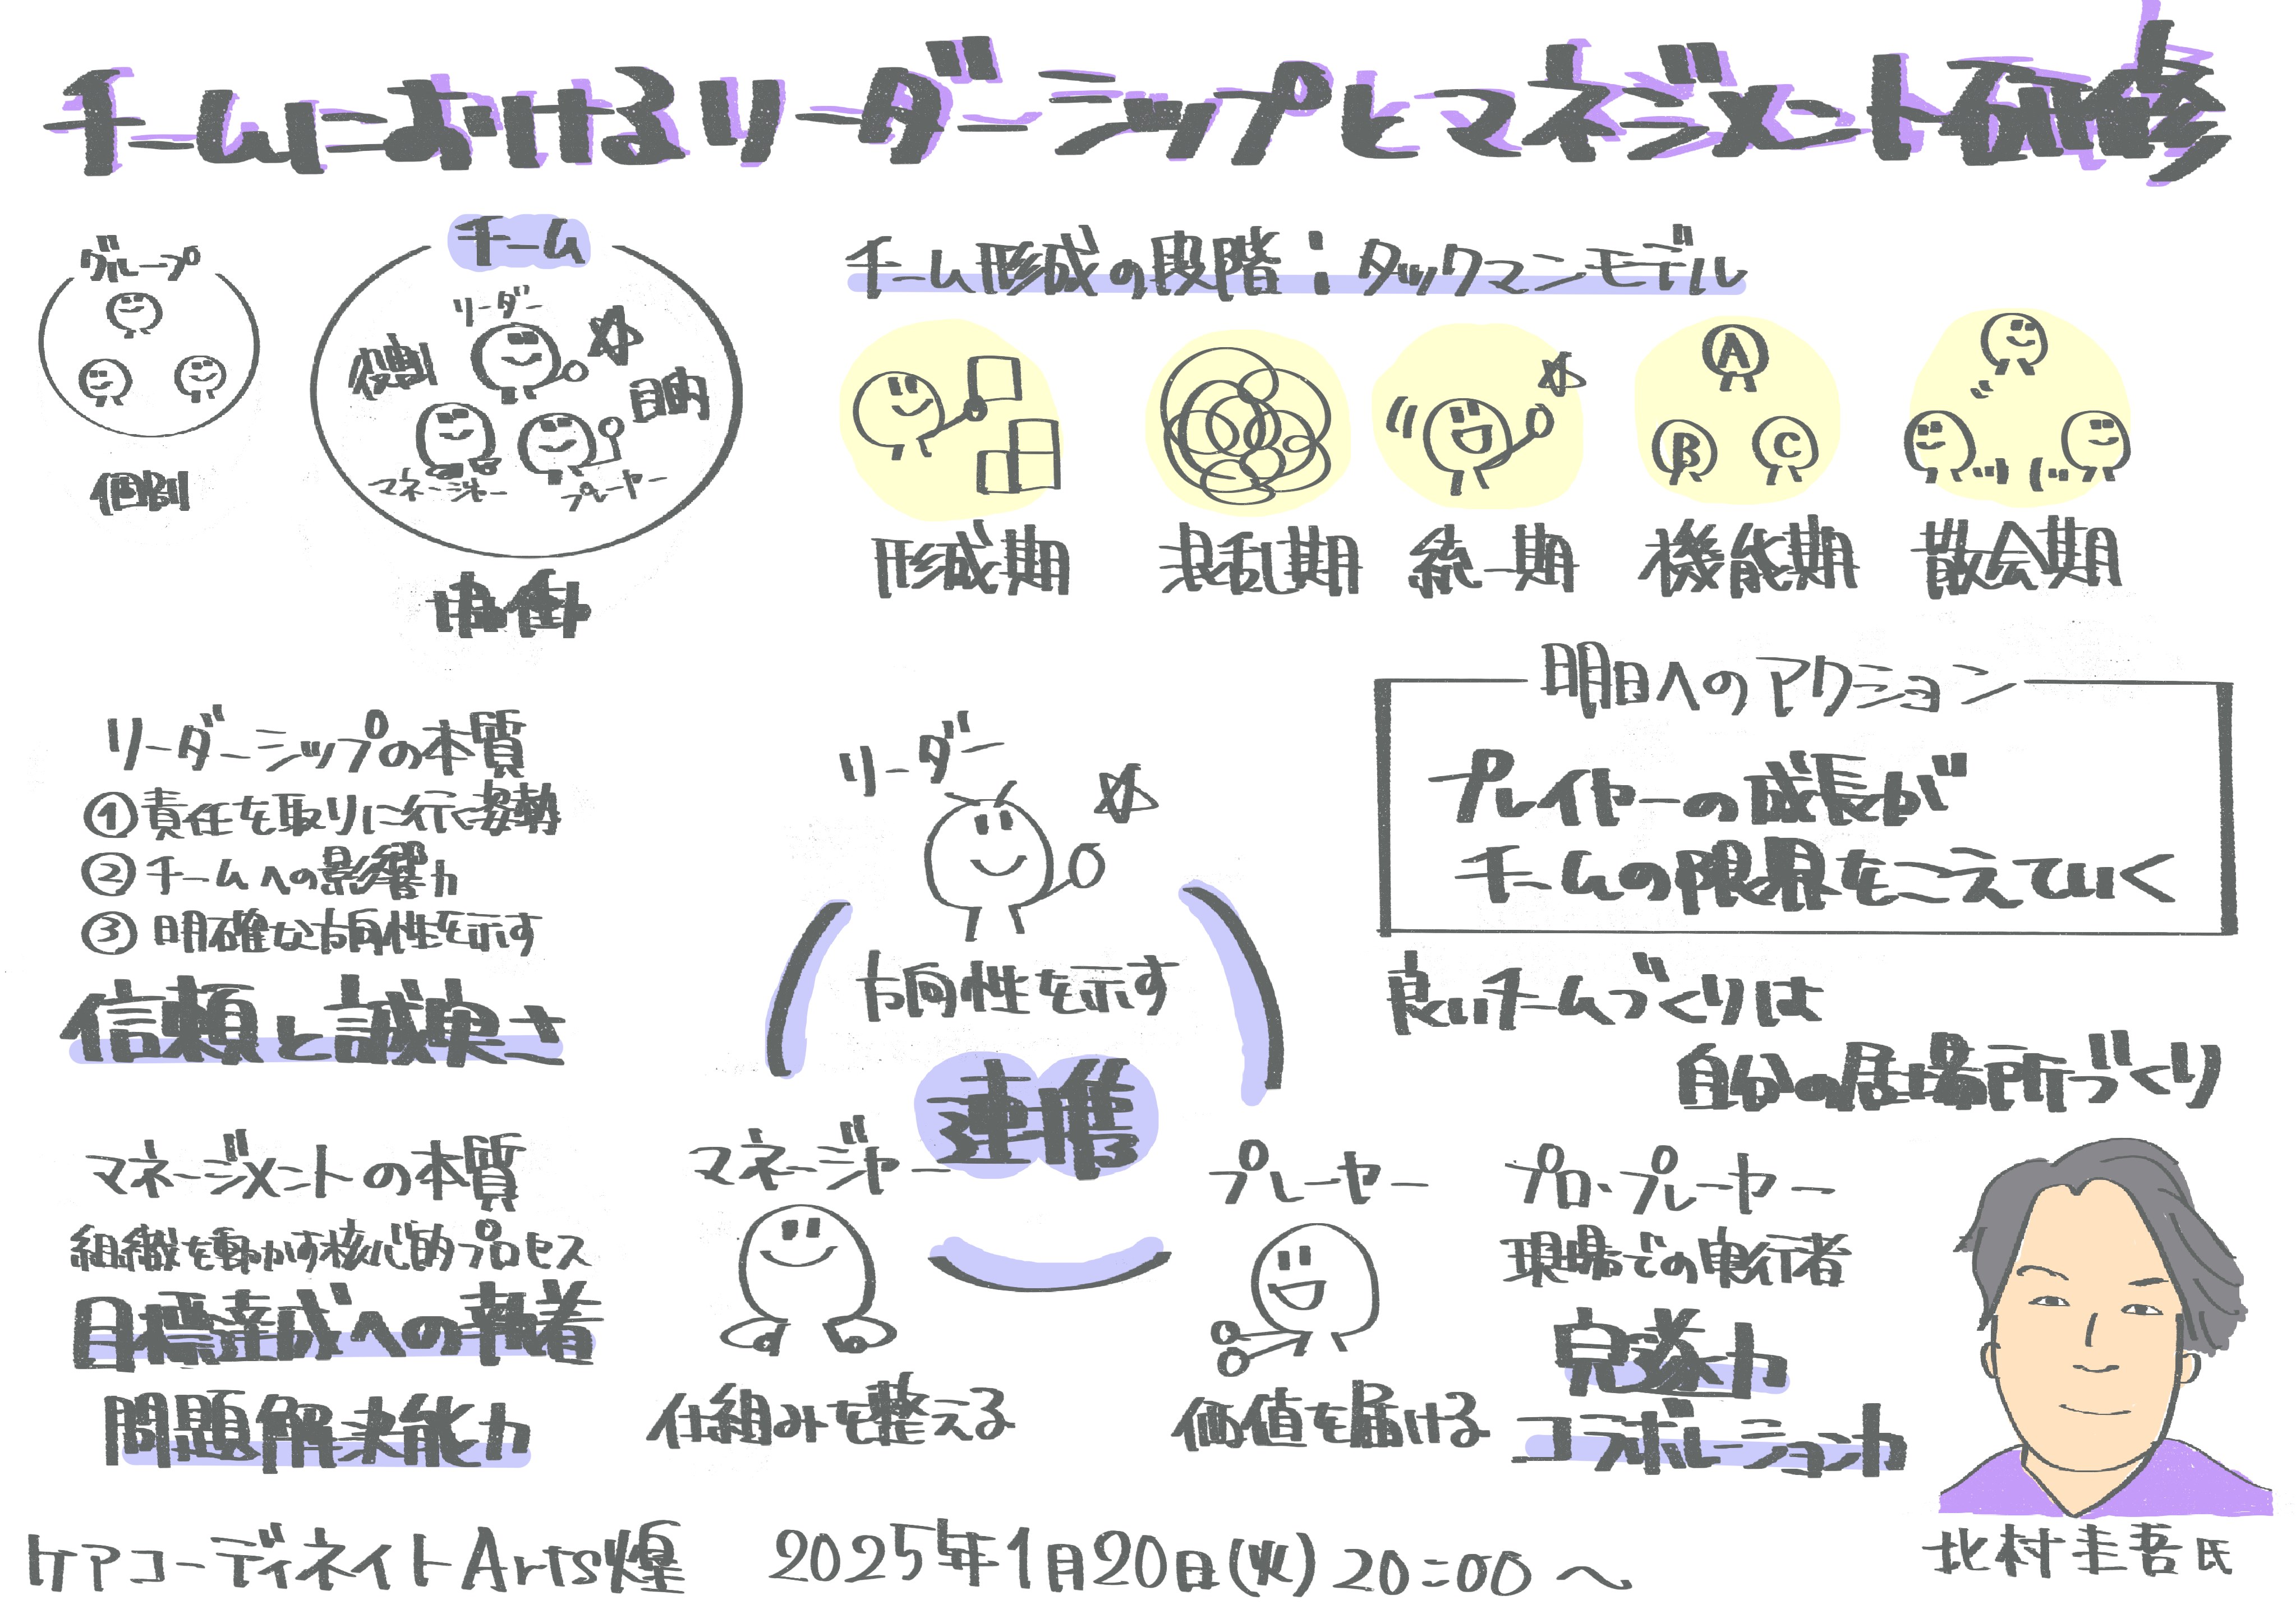 チームにおけるリーダーシップとマネジメント研修
グループ
個別
チーム
リーダー
役割
目的
マネージャー
プレーヤー
協働
チーム形成の段階：タックマンモデル
A
B
C
形成期
混乱期
統一期
機能期
散会期
リーダーシップの本質
①責任を取りに行く姿勢
②チームへの影響力
③明確な方向性を示す
信頼と誠実さ
マネージメントの本質
組織を動かす核心的プロセス
目標達成への執着
問題解決能力
リーダー
方向性を示す
連携
マネージャー
仕組みを整える
プレーヤー
価値を届ける
明日へのアクション
プレイヤーの成長が
チームの限界をこえていく
良いチームづくりは
自分の居場所づくり
プロ・プレーヤー
現場での実行者
完遂力
コラボレーション力
北村圭吾氏
ケアコーディネイトArts煌
2025年1月20日(火)20:00〜